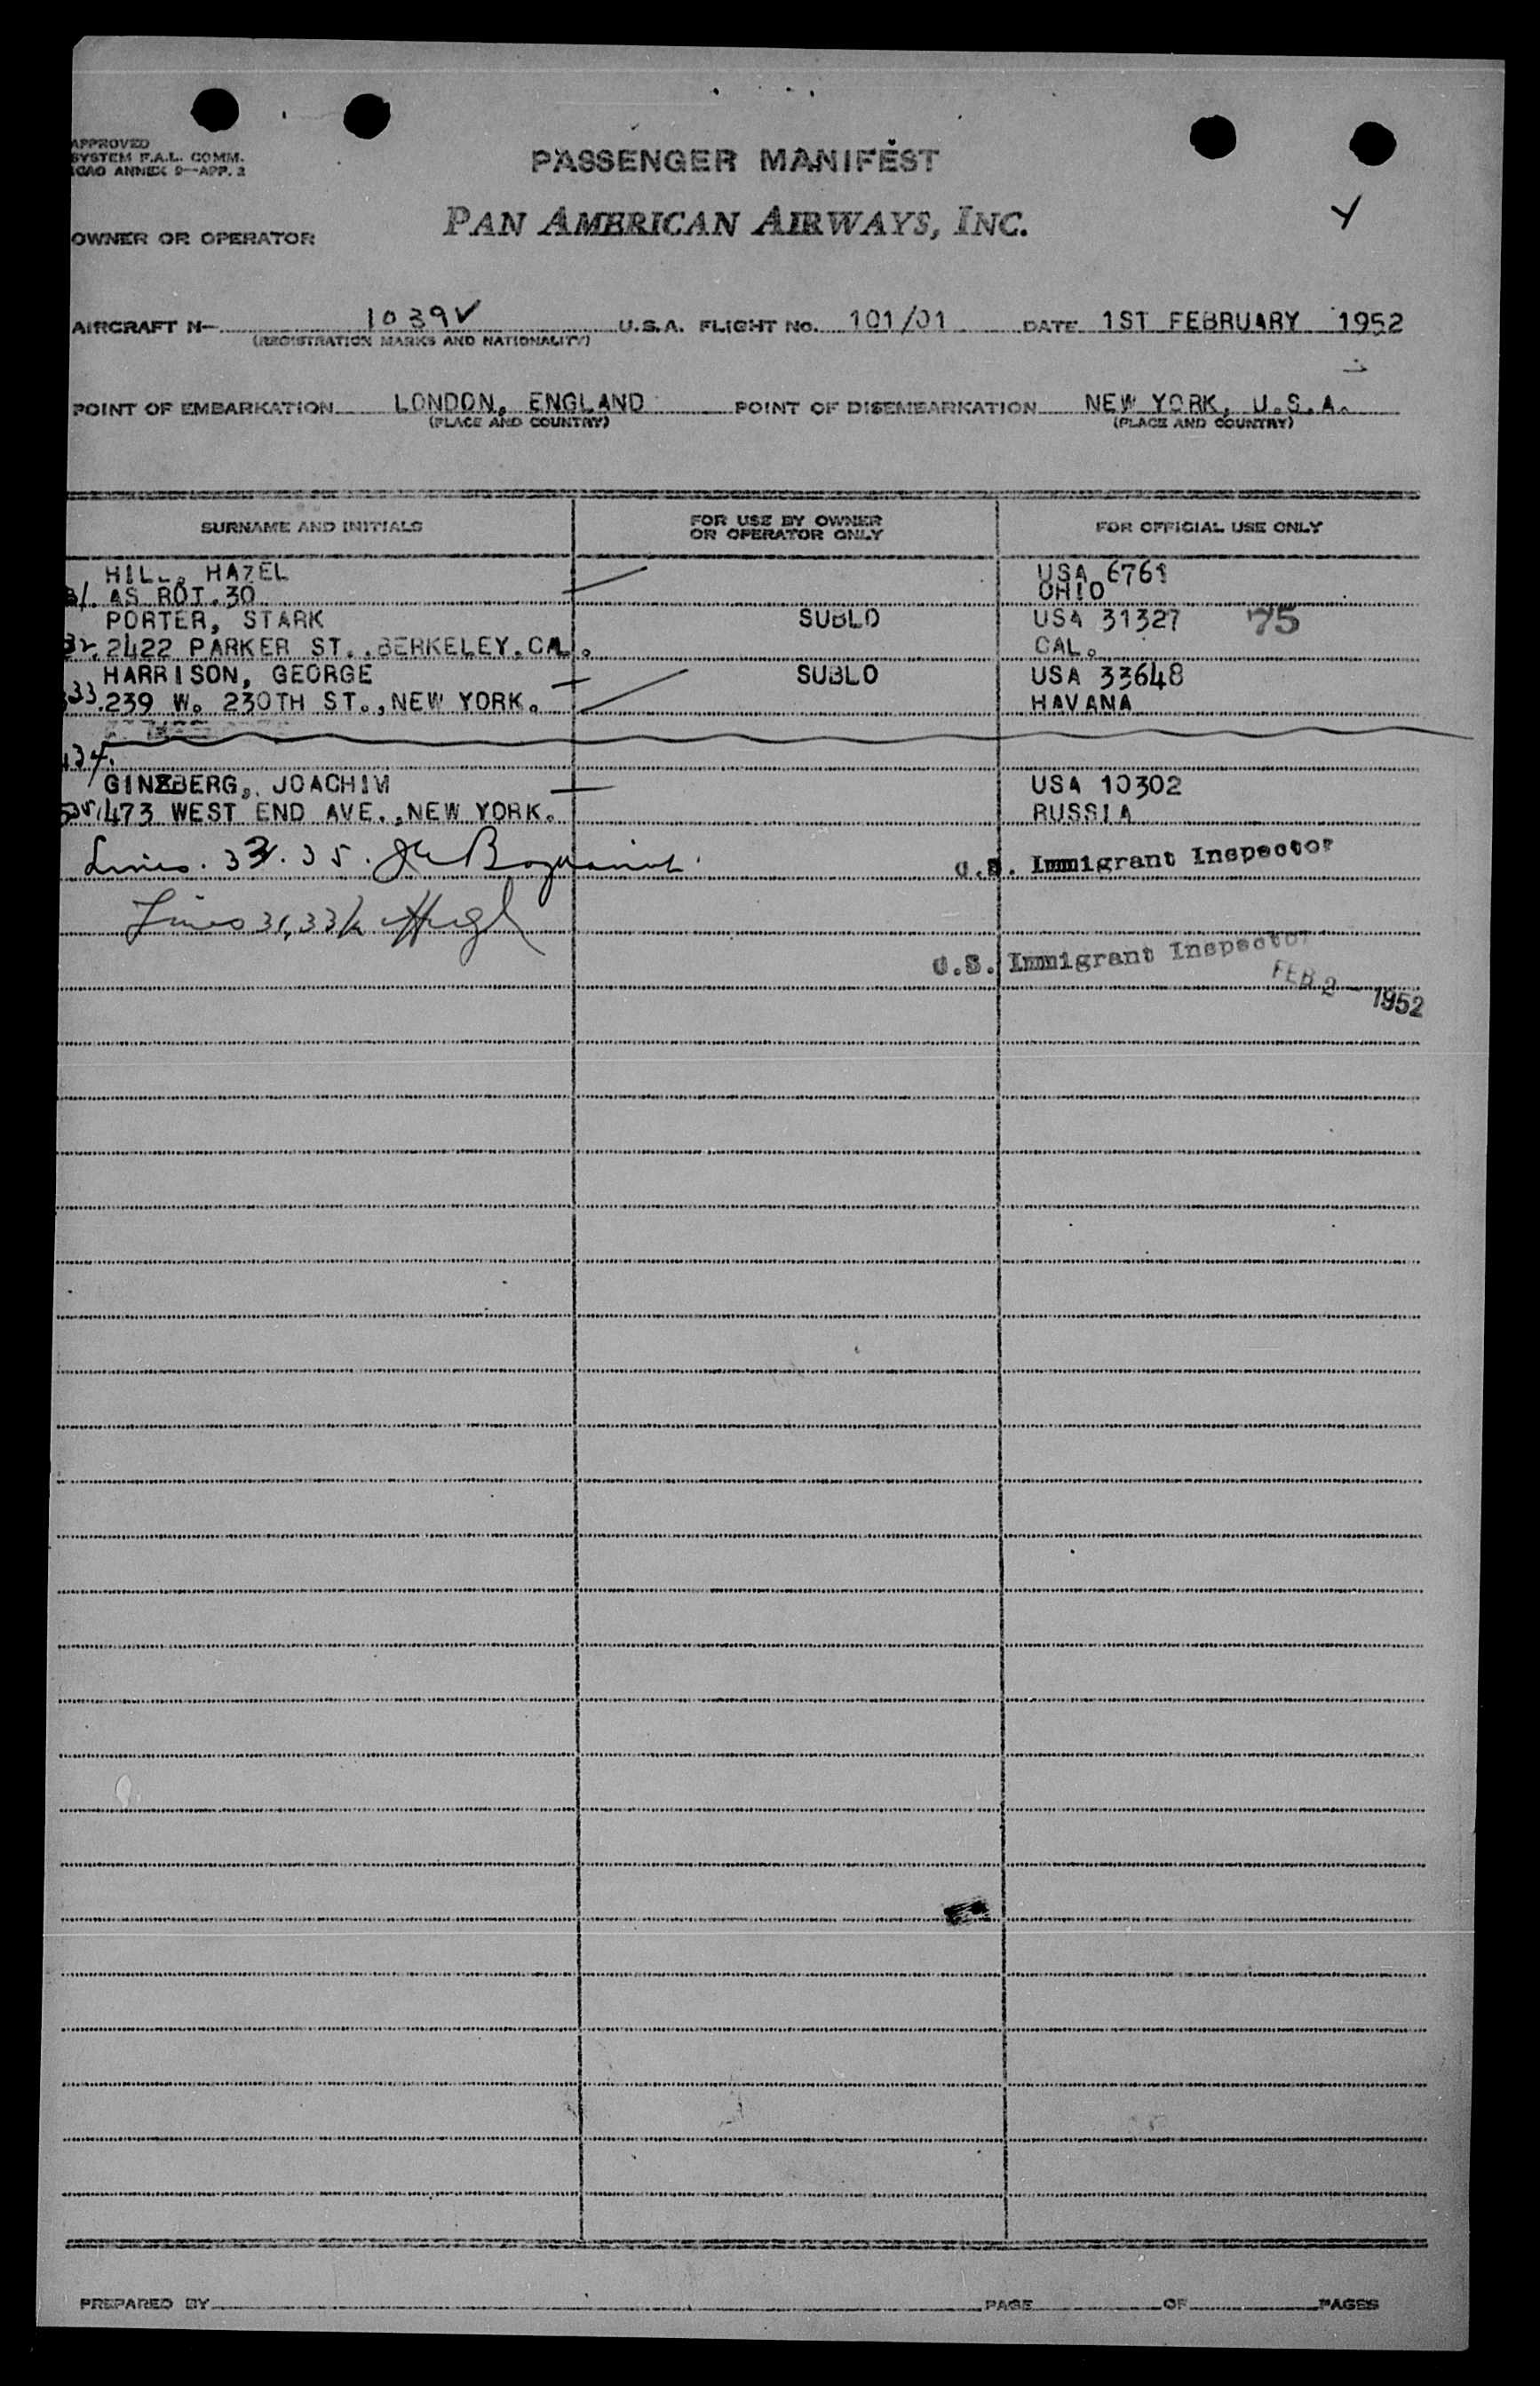 APPROVED
SYSTEM F.A.L. COMM.
ICAO ANNEX 9—APP. 2
PASSENGER MANIFEST
Y
OWNER OR OPERATOR
PAN AMERICAN AIRWAYS, INC.
AIRCRAFT N- 1039V U.S.A. FLIGHT NO. 101/01 DATE 1ST FEBRUARY 1952
(REGISTRATION MARKS AND NATIONALITY)
POINT OF EMBARKATION LONDON, ENGLAND POINT OF DISEMBARKATION NEW YORK, U.S.A.
(PLACE AND COUNTRY) (PLACE AND COUNTRY)
SURNAME AND INITIALS FOR USE BY OWNER OR OPERATOR ONLY FOR OFFICIAL USE ONLY
HILL, HAZEL USA 6761
31. AS ROT.30 OHIO
PORTER, STARK SUBLO USA 31327 75
32. 2422 PARKER ST., BERKELEY, CAL. CAL.
HARRISON, GEORGE SUBLO USA 33648
33. 239 W. 230TH ST., NEW YORK. HAVANA
34.
GINZBERG, JOACHIM USA 10302
35. 473 WEST END AVE., NEW YORK. RUSSIA
Lines. 32. 35. U.S. Immigrant Inspector
Lines 31, 33
U.S. Immigrant Inspector
FEB 2 - 1952
PREPARED BY PAGE OF PAGES